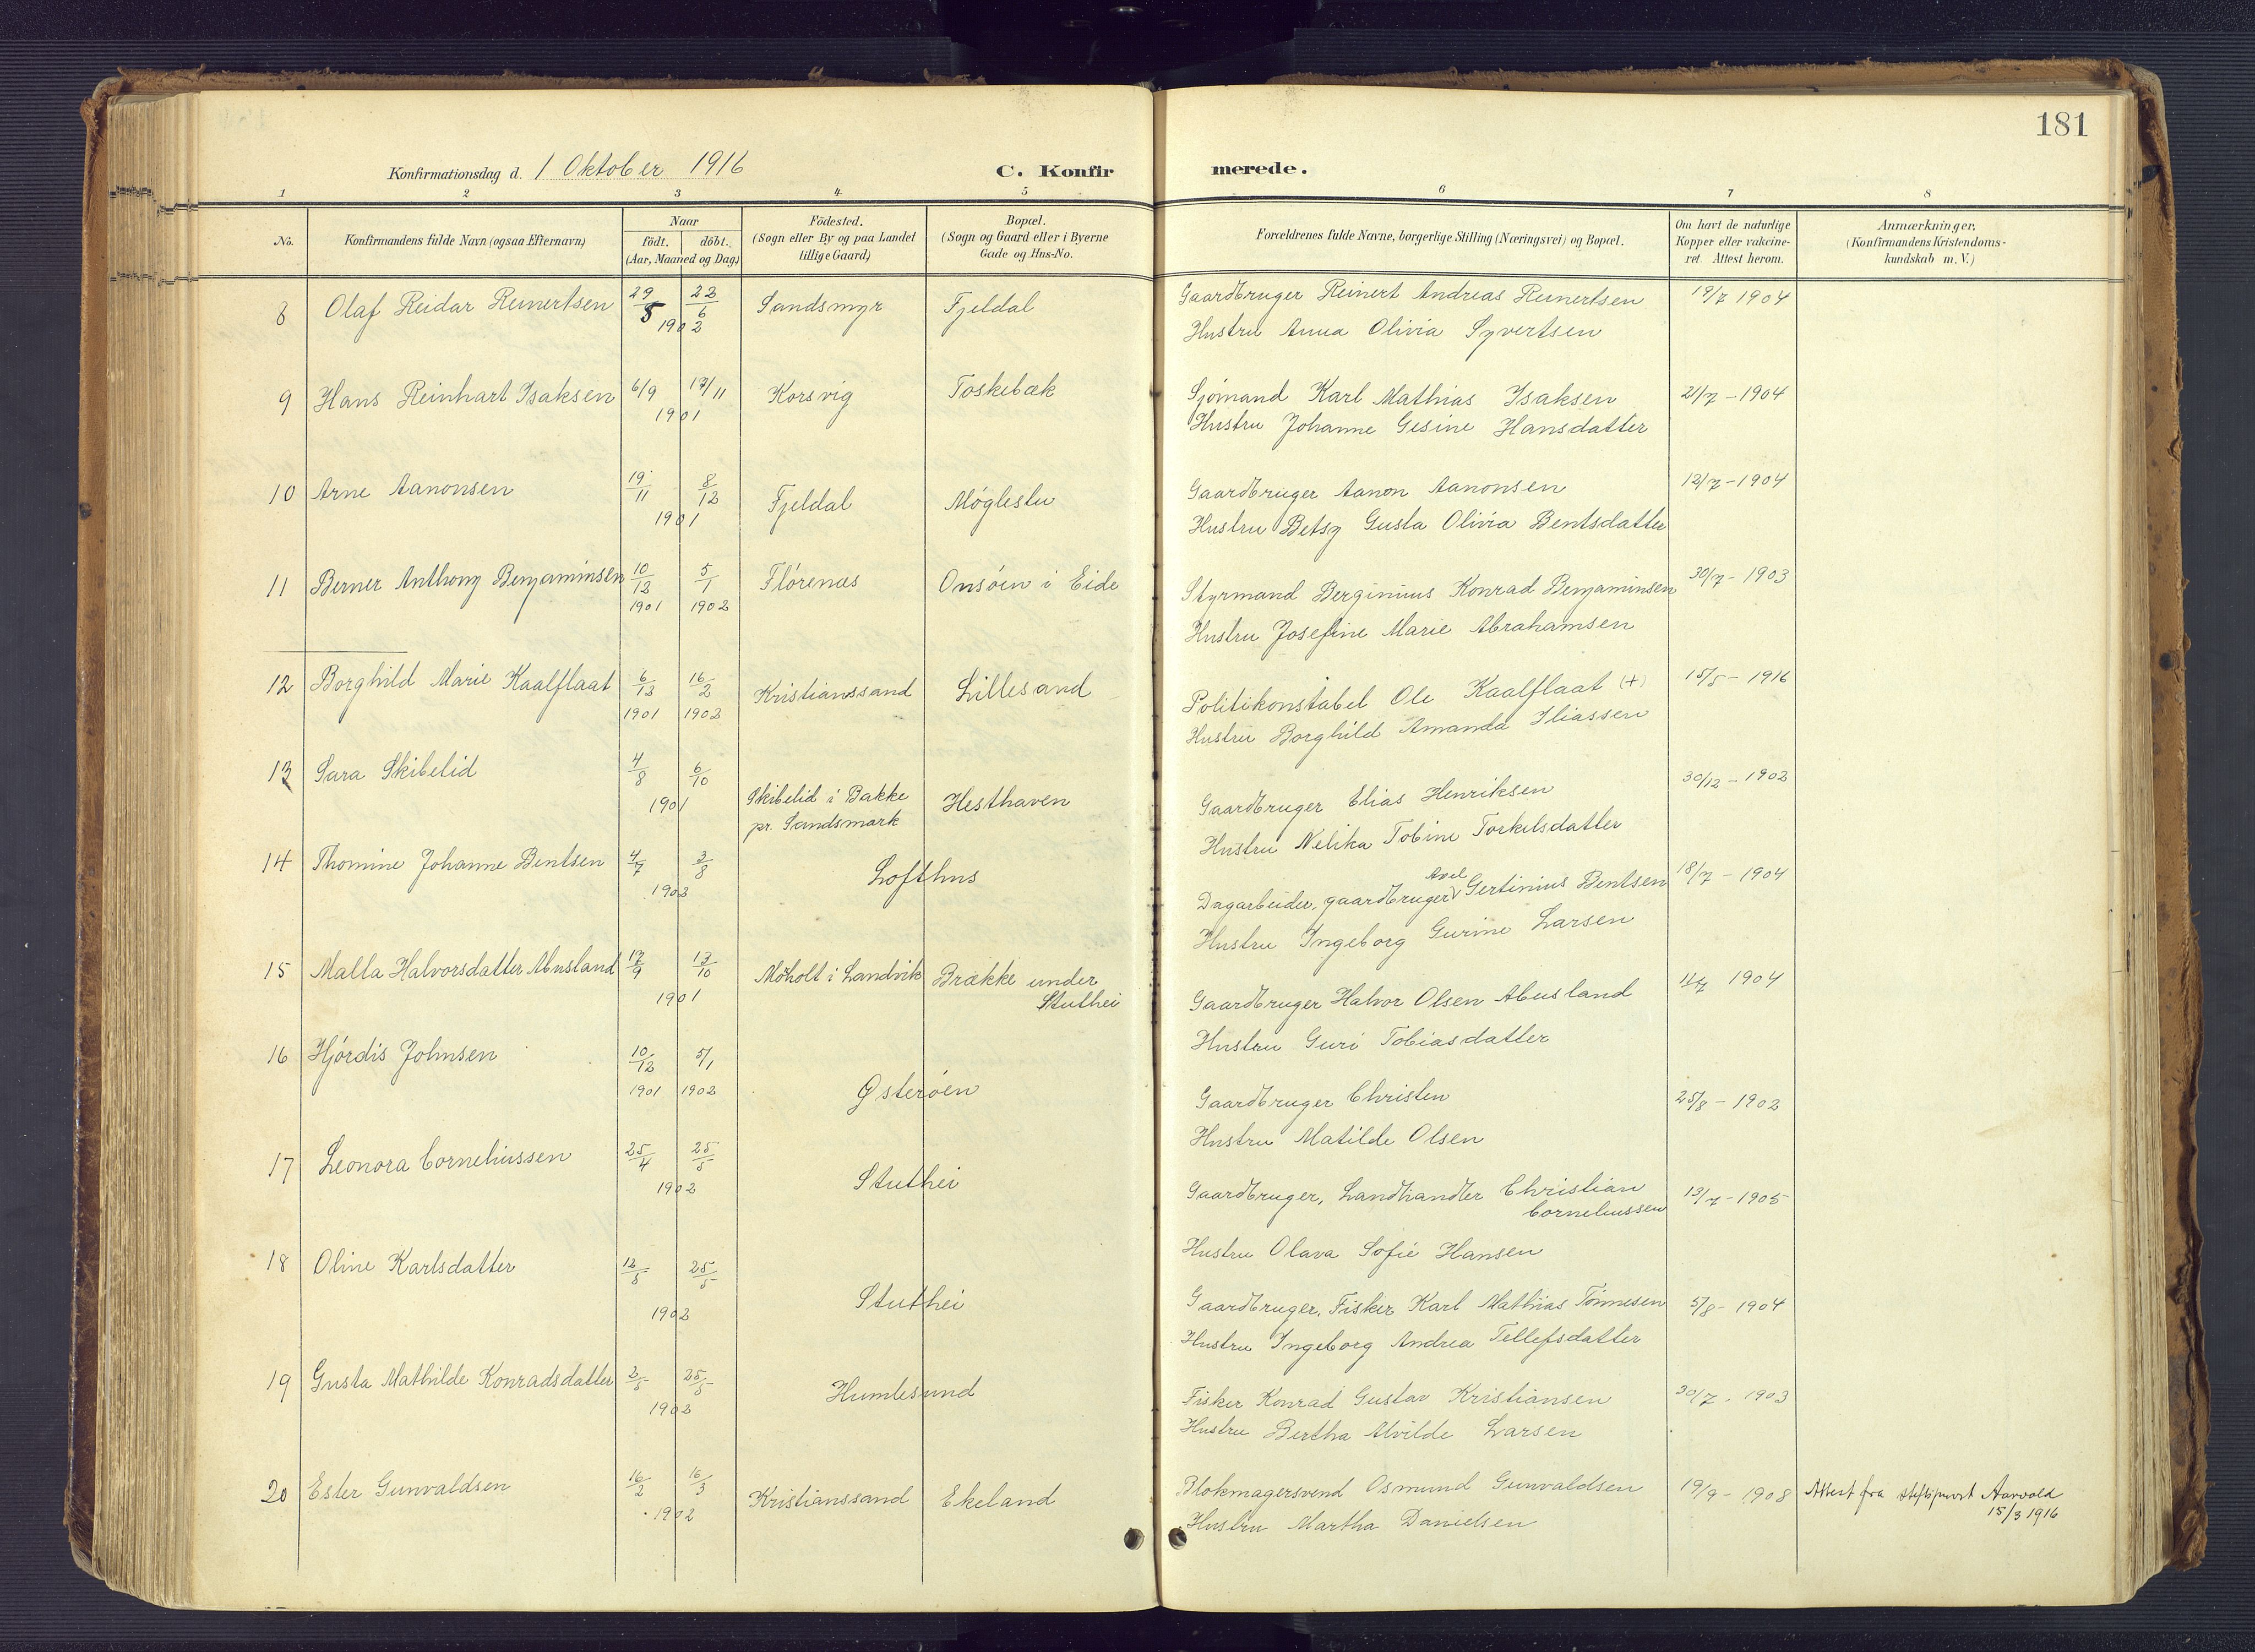 181
Konfirmationsdag d. 1 Oktober 1916
C. Konfir
merede.
1 2 3 4 5 6 7 8
No.
Konfirmandens fulde Navn (ogsaa Efternavn)
Naar
födt. döbt.
(Aar, Maaned og Dag)
Födested.
(Sogn eller By og paa Landet
tillige Gaard)
Bopæl.
(Sogn og Gaard eller i Byerne
Gade og Hus-No.
Forældrenes fulde Navne, borgerlige Stilling (Næringsvei) og Bopæl.
Om havt de naturlige
Kopper eller vakcine-
ret. Attest herom.
Anmærkninger.
(Konfirmandens Kristendoms-
kundskab m. V.)
8 Olaf Reidar Reinertsen 29/5 22/6 1902 Sandsmyr Fjeldal
Gaardbruger Reinert Andreas Reinertsen 19/7 1904
Hustru Anna Olivia Syvertsen
9 Hans Reinhart Isaksen 6/9 17/11 1901 Korsvig Toskebæk
Sjømand Karl Mathias Isaksen 21/7 - 1904
Hustru Johanne Gesine Hansdatter
10 Arne Aanonsen 19/11 8/12 1901 Fjeldal Møglestu
Gaardbruger Aanon Aanonsen 12/7 - 1904
Hustru Betsy Gusta Olivia Bentsdatter
11 Berner Anthony Benjaminsen 10/12 1901 5/1 1902 Flörenæs Onsöen i Eide
Styrmand Berginius Konrad Benjaminsen 30/7 - 1903
Hustru Josefine Marie Abrahamsen
12 Borghild Marie Kaalflaat 6/12 1901 16/2 1902 Kristianssand Lillesand
Politikonstabel Ole Kaalflaat (+) 15/5 - 1916
Hustru Borghild Amanda Iliassen
13 Sara Skibelid 4/8 6/10 1901 Skibelid i Bakke
pr. Sandsmark Hesthaven
Gaardbruger Elias Henriksen 30/12 - 1902
Hustru Nelika Tobine Torkelsdatter
14 Thomine Johanne Bentsen 4/7 3/8 1902 Lofthus
Dagarbeider, gaardbruger Axel Gertinius Bentsen 18/7 - 1904
Hustru Ingeborg Gurine Larsen
15 Malla Halvorsdatter Abusland 17/9 13/10 1901 Moholt i Landvik Brække under
Stuthei
Gaardbruger Halvor Olsen Abusland 11/7 1904
Hustru Guri Tobiasdatter
16 Hjórdis Johnsen 10/12 1901 5/1 1902 Østeröen
Gaardbruger Christen 25/8 - 1902
Hustru Matilde Olsen
17 Leonora Corneliussen 25/4 25/5 1902 Stuthei
Gaardbruger, Landhandler Christian
Corneliussen 13/7 - 1905
Hustru Olava Sofie Hansen
18 Oline Karlsdatter 12/5 25/5 1902 Stuthei
Gaardbruger, Fisker Karl Mathias Tönnesen 5/8 - 1904
Hustru Ingeborg Andrea Tellefsdatter
19 Gusta Mathilde Konradsdatter 2/5 25/5 1902 Humlesund
Fisker Konrad Gustav Kristiansen 30/7 . 1903
Hustru Bertha Alvilde Larsen
20 Ester Gunvaldsen 16/2 16/3 1902 Kristianssand Ekeland
Blokmagersvend Osmund Gunvaldsen 19/9 - 1908 Attest fra stiftsprovst Aarvold
15/3 1916
Hustru Martha Danielsen